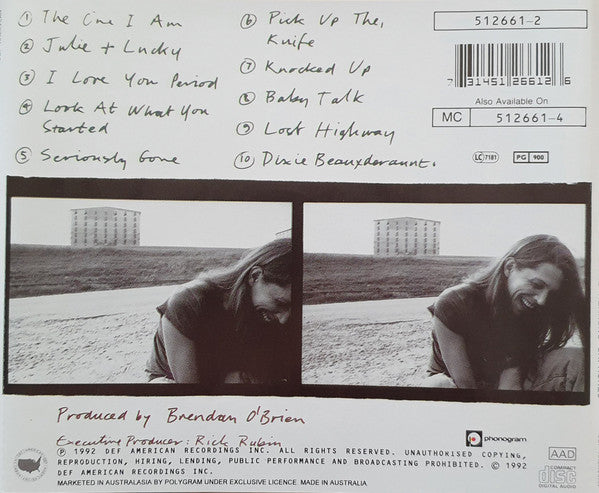 ① The One I Am
② Julie + Lucky
③ I Love You Period
④ Look At What You
Started
⑤ Seriously Gone
⑥ Pick Up The,
Knife
⑦ Knocked Up
⑧ Baby Talk
⑨ Lost Highway
⑩ Dixie Beauxderaunt.
512661-2
7 31451 26612 6
Also Available On
MC 512661-4
LC 7181
PG 900
Produced by Brendan O'Brien
Executive Producer: Rick Rubin
℗ 1992 DEF AMERICAN RECORDINGS INC. ALL RIGHTS RESERVED. UNAUTHORISED COPYING,
REPRODUCTION, HIRING, LENDING, PUBLIC PERFORMANCE AND BROADCASTING PROHIBITED. © 1992
DEF AMERICAN RECORDINGS INC.
MARKETED IN AUSTRALASIA BY POLYGRAM UNDER EXCLUSIVE LICENCE. MADE IN AUSTRALIA.
phonogram
AAD
COMPACT
disc
DIGITAL AUDIO